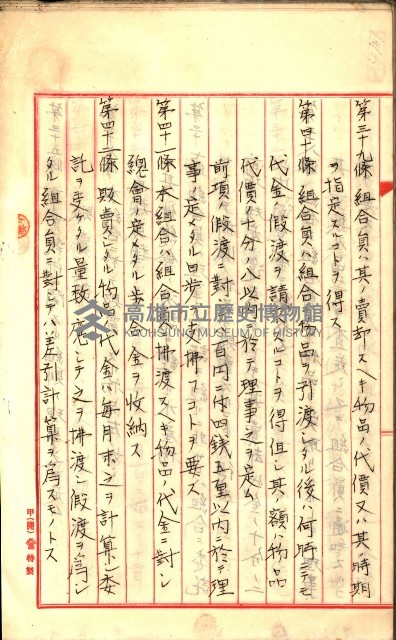 第三十九條 組合員ハ其ノ賣却スヘキ物品ノ代價又ハ其ノ時期
ヲ指定スルコトヲ得ス
第四十條 組合員ハ組合ニ物品ヲ引渡シタル後ハ何時ニテモ
代金ノ假渡ヲ請求スルコトヲ得但シ其ノ額ハ物品
代價ノ十分ノ八以內ニ於テ理事之ヲ定ム
前項ノ假渡ニ對シテハ百円ニ付四錢五厘以內ニ於テ理
事ノ定メタル日歩ヲ支拂フコトヲ要ス
第四十一條 本組合ハ組合員ニ拂渡スヘキ物品ノ代金ニ對シ
總會ノ定メタル歩合金ヲ收納ス
第四十二條 販賣シタル物品ノ代金ハ每月末之ヲ計算シ委
託ヲ受ケタル量數ニ應シテ之ヲ拂渡シ假渡ヲ爲シ
タル組合員ニ對シテハ差引計算ヲ爲スモノトス
高雄市立歷史博物館
KAOHSIUNG MUSEUM OF HISTORY